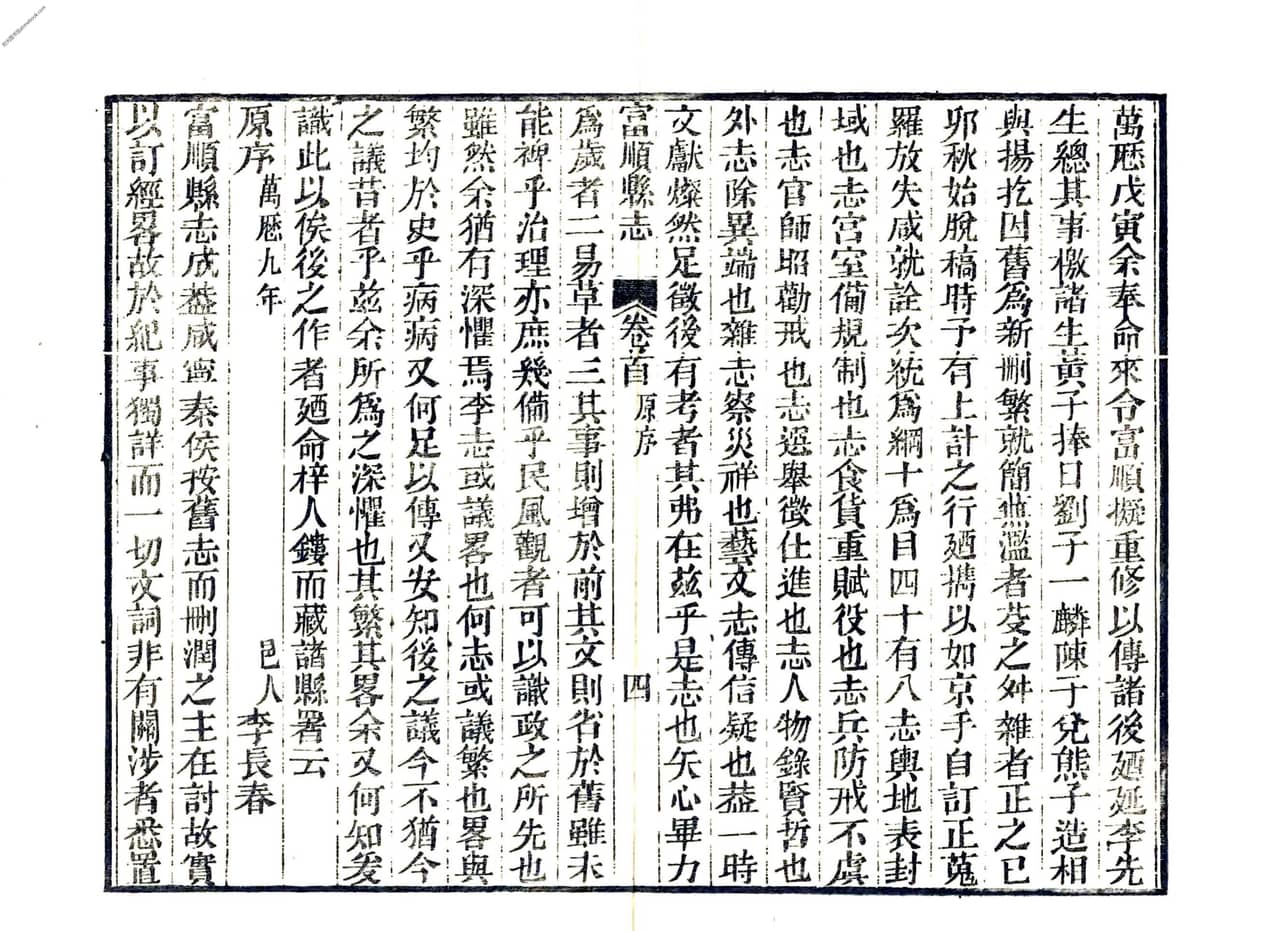 萬厯戊寅余奉命來令富順擬重修以傳諸後廼延李先
生總其事檄諸生黃子捧日劉子一麟陳子兌熊子造相
與揚扢因舊爲新刪繁就簡蕪濫者芟之舛雜者正之已
卯秋始脫稿時予有上計之行廼攜以如京手自訂正蒐
羅放失咸就詮次統爲綱十爲目四十有八志輿地表封
域也志宮室備規制也志食貨重賦役也志兵防戒不虞
也志官師昭勸戒也志選舉徵仕進也志人物錄賢哲也
外志除異端也雜志察災祥也藝文志傳信疑也葢一時
文獻燦然足徵後有考者其弗在茲乎是志也矢心畢力
富順縣志 卷首 原序 四
爲歲者二易草者三其事則增於前其文則省於舊雖未
能裨乎治理亦庶幾備乎民風觀者可以識政之所先也
雖然余猶有深懼焉李志或議畧也何志或議繁也畧與
繁均於史乎病病又何足以傳又安知後之議今不猶今
之議昔者乎茲余所爲之深懼也其繁其畧余又何知爰
識此以俟後之作者廼命梓人鏤而藏諸縣署云
原序 萬厯九年 邑人李長春
富順縣志成葢咸寧秦侯按舊志而刪潤之主在討故實
以訂經畧故於紀事獨詳而一切文詞非有關涉者悉置